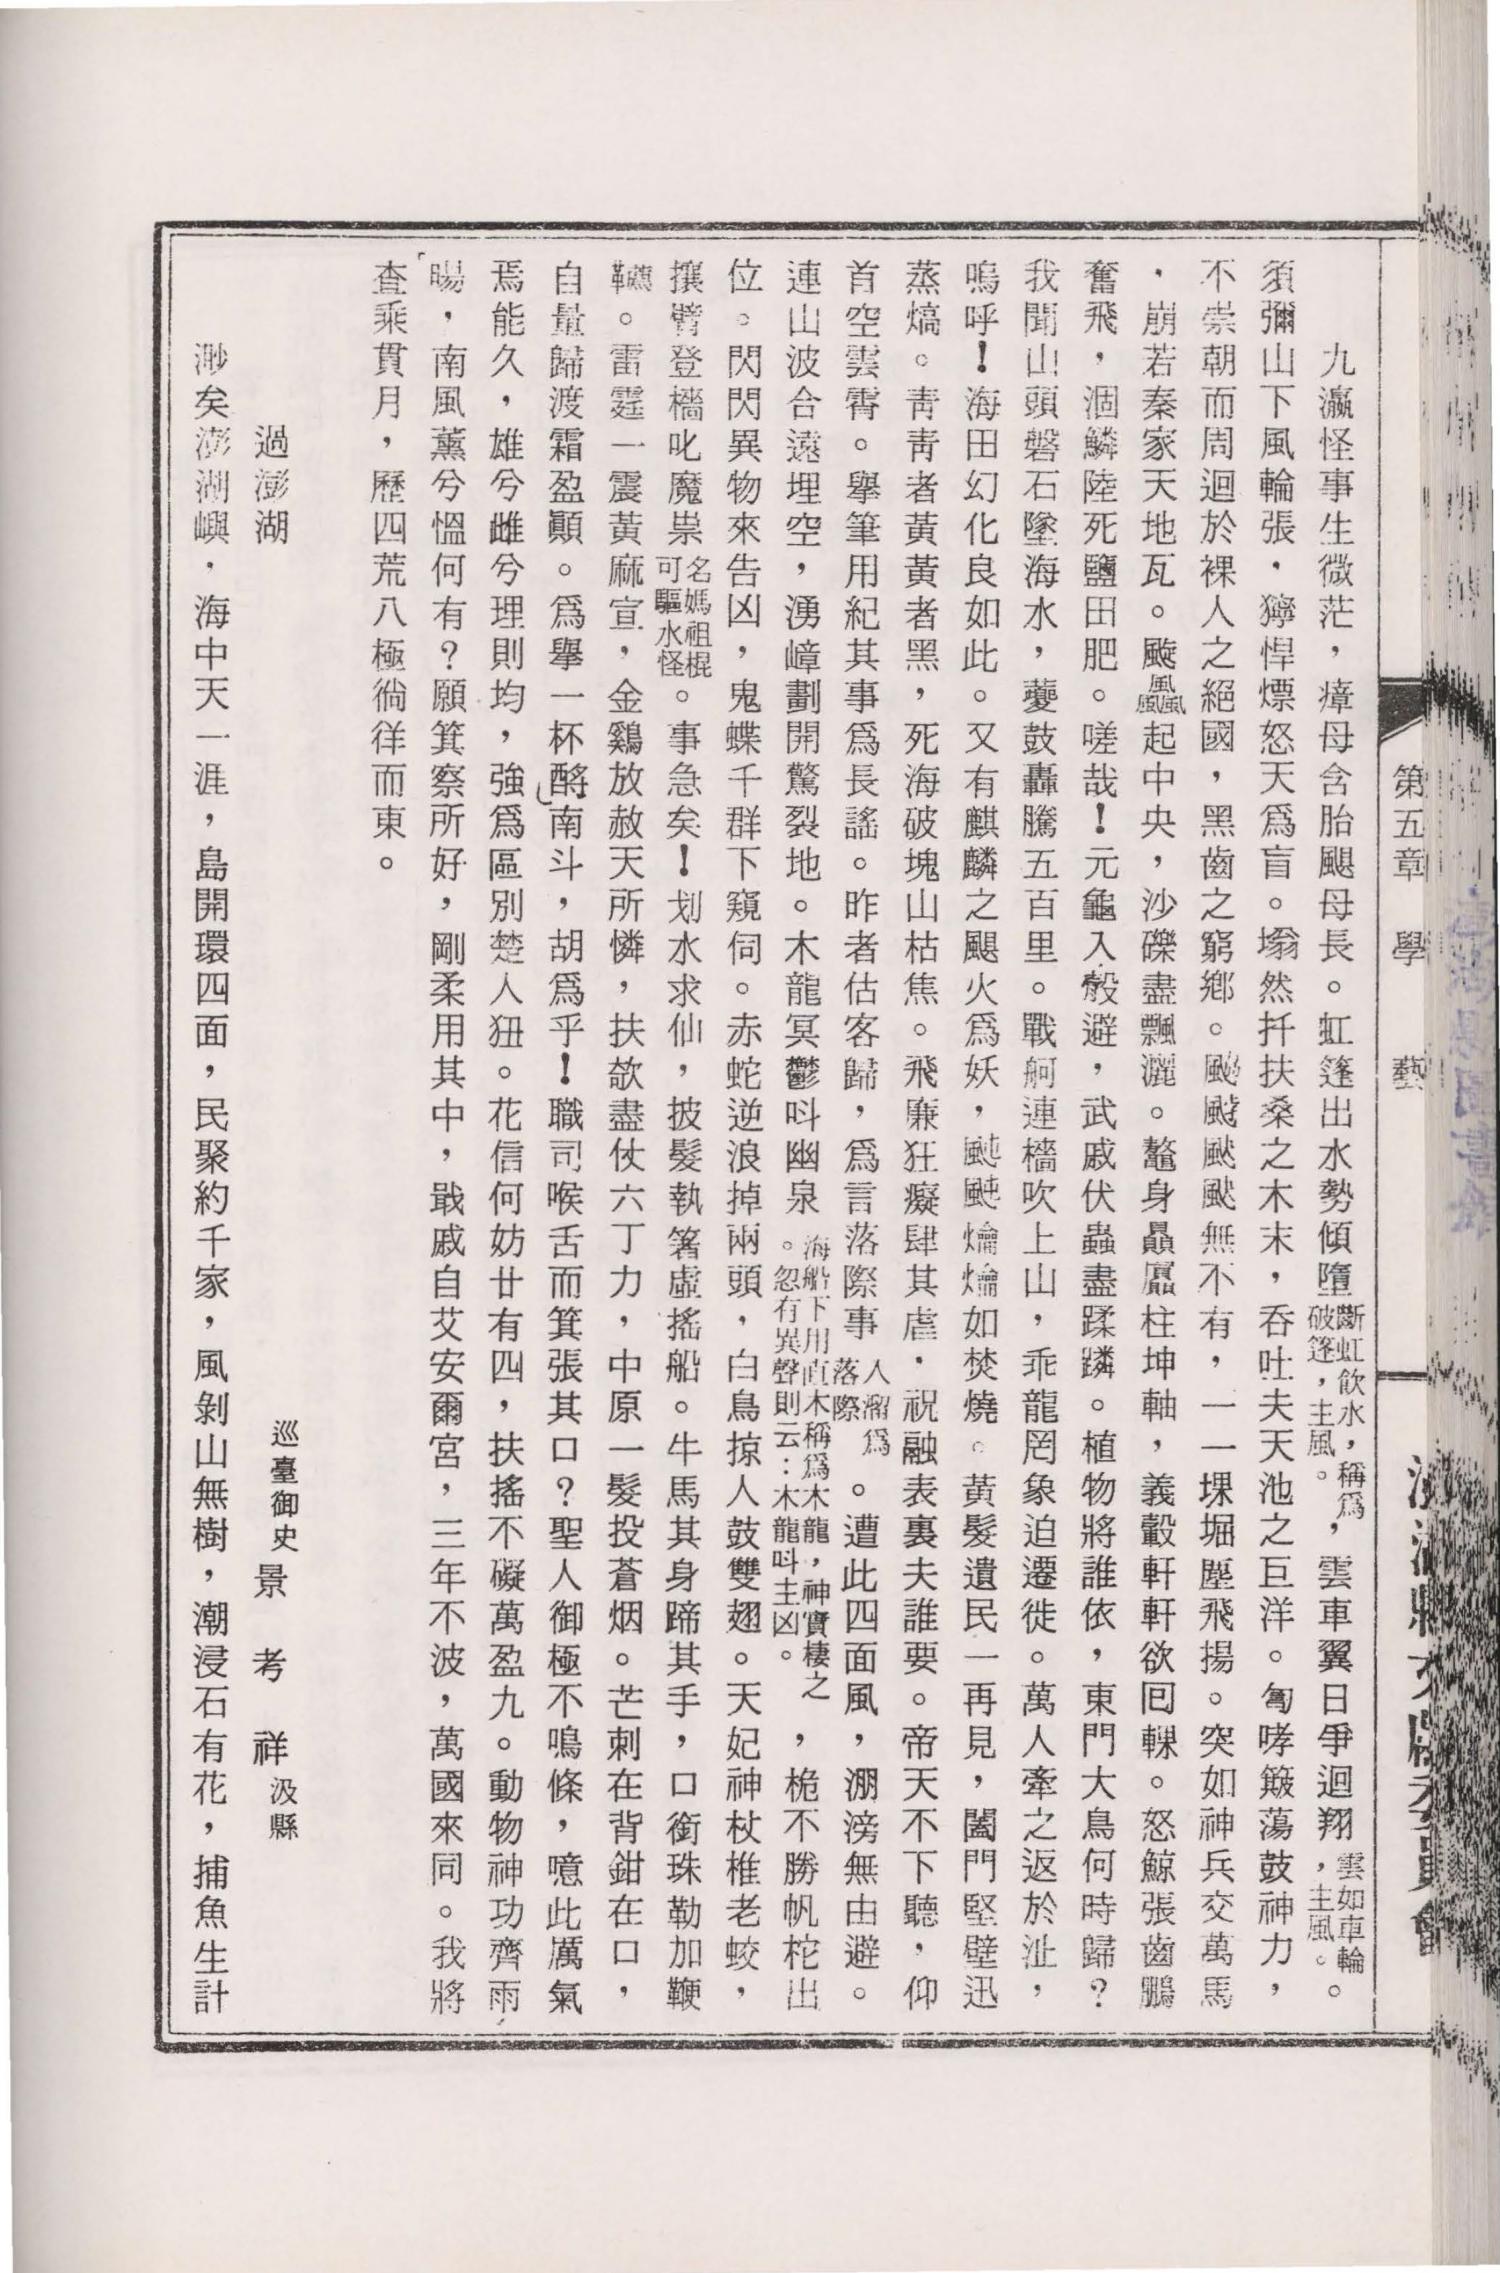 第五章　學　藝
九瀛怪事生微茫，瘴母含胎颶母長。虹篷出水勢傾墮斷虹飲水，稱爲破篷，主風。，雲車翼日爭迴翔雲如車輪，主風。。
須彌山下風輪張，獰悍熛怒天爲盲。塕然扞扶桑之木末，吞吐夫天池之巨洋。訇哮簸蕩鼓神力，
不崇朝而周迴於裸人之絕國，黑齒之窮鄉。颮颮颫颫無不有，一一堁堀塵飛揚。突如神兵交萬馬
，崩若秦家天地瓦。颷飍起中央，沙礫盡飄灑。鼇身贔屭柱坤軸，義轂軒軒欲囘輠。怒鯨張齒鵬
奮飛，涸鱗陸死鹽田肥。嗟哉！元龜入殼避，武戚伏蟲盡蹂躪。植物將誰依，東門大鳥何時歸？
我聞山頭磐石墜海水，鼕鼓轟騰五百里。戰舸連檣吹上山，乖龍罔象迫遷徙。萬人牽之返於沚，
嗚呼！海田幻化良如此。又有麒麟之颶火爲妖，颰颰爚爚如焚燒。黃髮遺民一再見，闔門堅壁迅
蒸熇。靑靑者黃黃者黑，死海破塊山枯焦。飛廉狂癡肆其虐，祝融表裏夫誰要。帝天不下聽，仰
首空雲霄。擧筆用紀其事爲長謠。昨者估客歸，爲言落際事人溜爲落際。遭此四面風，淜滂無由避。
連山波合遠埋空，湧嶂劃開驚裂地。木龍冥鬱呌幽泉海船下用直木稱爲木龍，神實棲之。忽有異聲則云：木龍呌主凶。，桅不勝帆柁出
位。閃閃異物來告凶，鬼蝶千群下窺伺。赤蛇逆浪掉兩頭，白鳥掠人鼓雙翅。天妃神杖椎老蛟，
攘臂登檣叱魔祟名媽祖棍可驅水怪。事急矣！划水求仙，披髮執箸虛搖船。牛馬其身蹄其手，口銜珠勒加鞭
韉。雷霆一震黃麻宣，金鷄放赦天所憐，扶欹盡仗六丁力，中原一髮投蒼烟。芒刺在背鉗在口，
自量歸渡霜盈顚。爲擧一杯酹南斗，胡爲乎！職司喉舌而箕張其口？聖人御極不鳴條，噫此厲氣
焉能久，雄兮雌兮理則均，強爲區別楚人狃。花信何妨廿有四，扶搖不礙萬盈九。動物神功齊雨
暘，南風薰兮慍何有？願箕察所好，剛柔用其中，戢戚自艾安爾宮，三年不波，萬國來同。我將
查乘貫月，歷四荒八極徜徉而東。
過澎湖　巡臺御史景　考　祥汲縣
渺矣澎湖嶼，海中天一涯，島開環四面，民聚約千家，風剝山無樹，潮浸石有花，捕魚生計